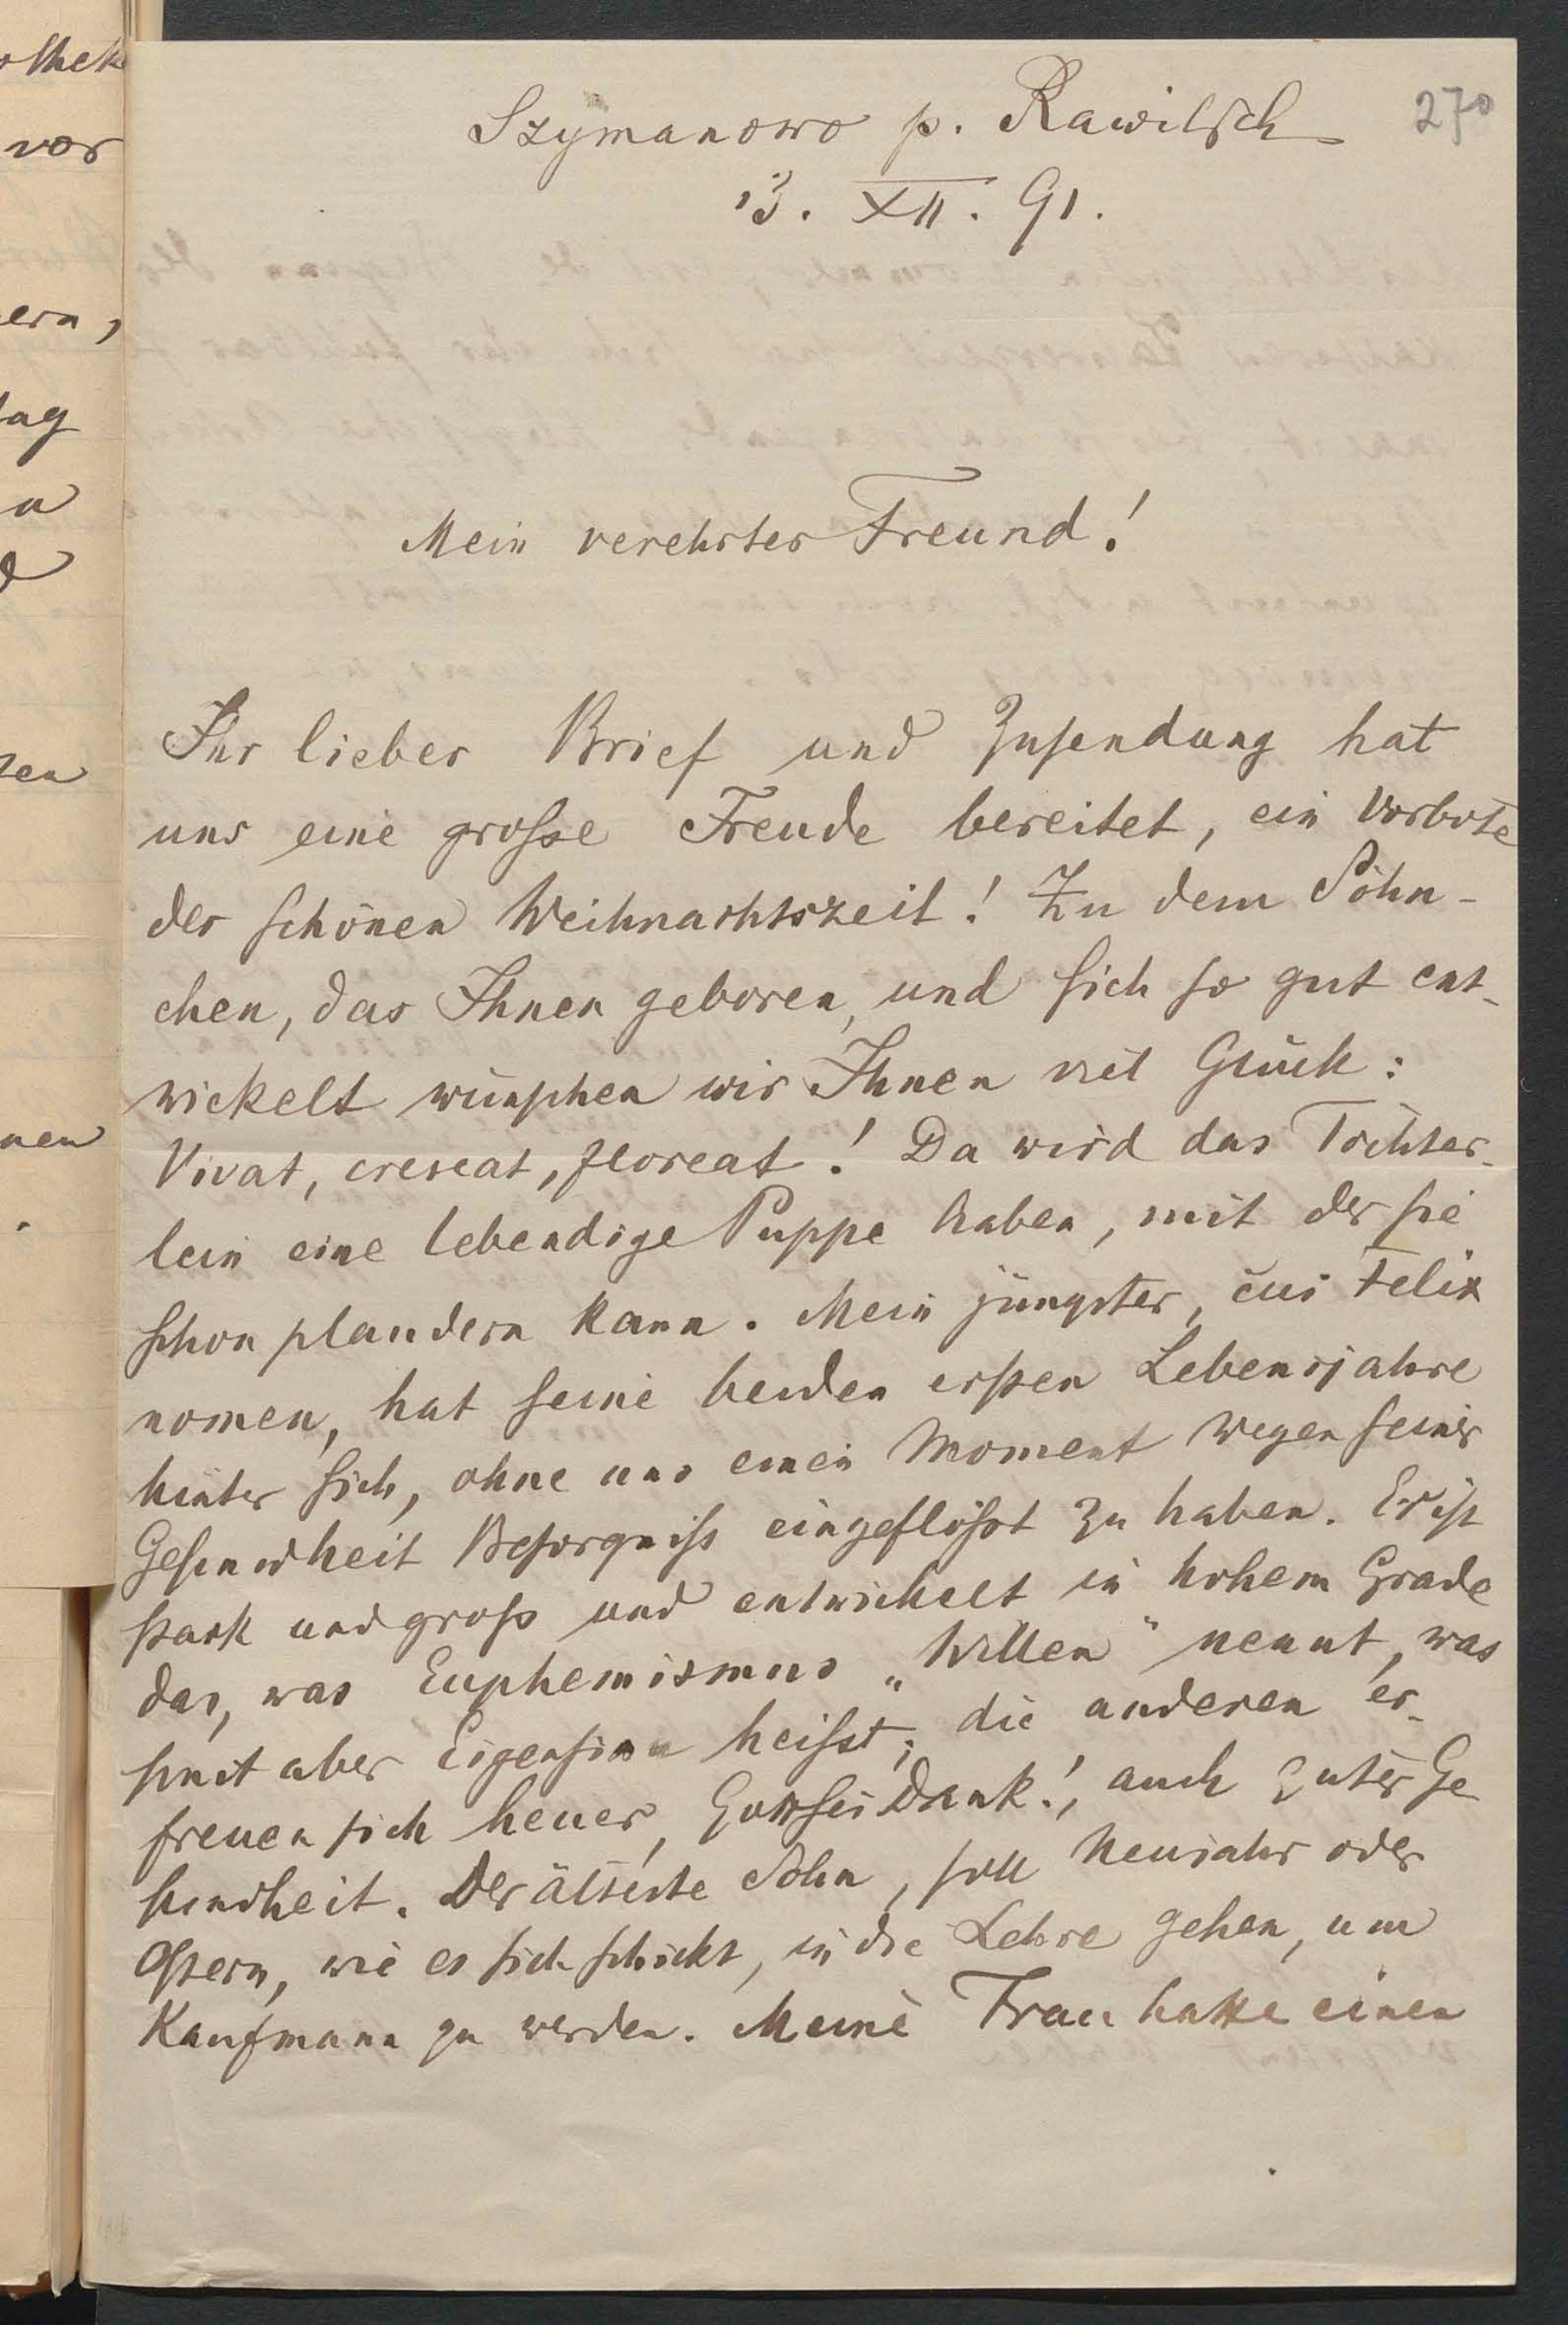 othek
vor
ern,
tag
a
d
ten
nen
270
Szymanowo p. Rawitsch
13. XII. 91.
Mein verehrter Freund!
Ihr lieber Brief und Zusendung hat
uns eine grosse Freude bereitet, ein Vorbote
der schönen Weihnachtszeit! Zu dem Söhn-
chen, das Ihnen geboren, und sich so gut ent-
wickelt wünschen wir Ihnen viel Glück:
Vivat, crescat, floreat! Da wird das Töchter-
lein eine lebendige Puppe haben, mit der sie
schon plaudern kann. Mein jüngster, cui Felix
nomen, hat seine beiden ersten Lebensjahre
hinter sich, ohne uns einen Moment wegen seiner
Gesundheit Besorgniss eingeflösst zu haben. Er ist
stark und gross und entwickelt in hohem Grade
das, was Euphemismus „Willen" nennt, was
sonst aber Eigensinn heisst; die anderen er-
freuen sich heuer, Gott sei Dank!, auch guter Ge
sundheit. Der älteste Sohn, soll Neujahr oder
Ostern, wie es sich schickt, in die Lehre gehen, um
Kaufmann zu werden. Meine Frau hatte einen